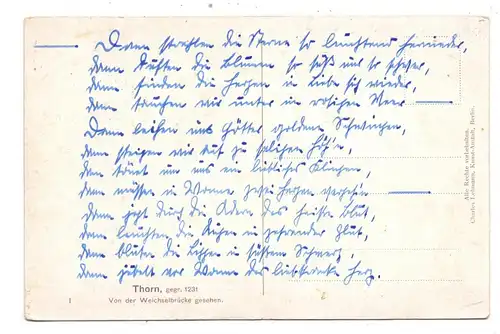 Dann strahlen die Sterne so leuchtend hernieder,
dann duften die Blumen so süß und so schwer,
dann finden die Herzen in Liebe sich wieder,
dann tauchen wir unter im rosigen Meer
Dann leihen uns Götter goldene Schwingen,
dann steigen wir auf zu seligen Höh'n,
dann tönt um uns ein liebliches Klingen,
dann müssen in Wonne zwei Herzen vergeh'n
dann geht durch die Adern das heiße Blut,
dann leuchten die Augen in zehrender Glut,
dann bluten die Lippen in süßem Schmerz,
dann jubelt vor Wonne das Herz.
Thorn, gegr. 1231
1 Von der Weichselbrücke gesehen.
Alle Rechte vorbehalten.
Charles Lehmann, Kunst-Anstalt, Berlin.